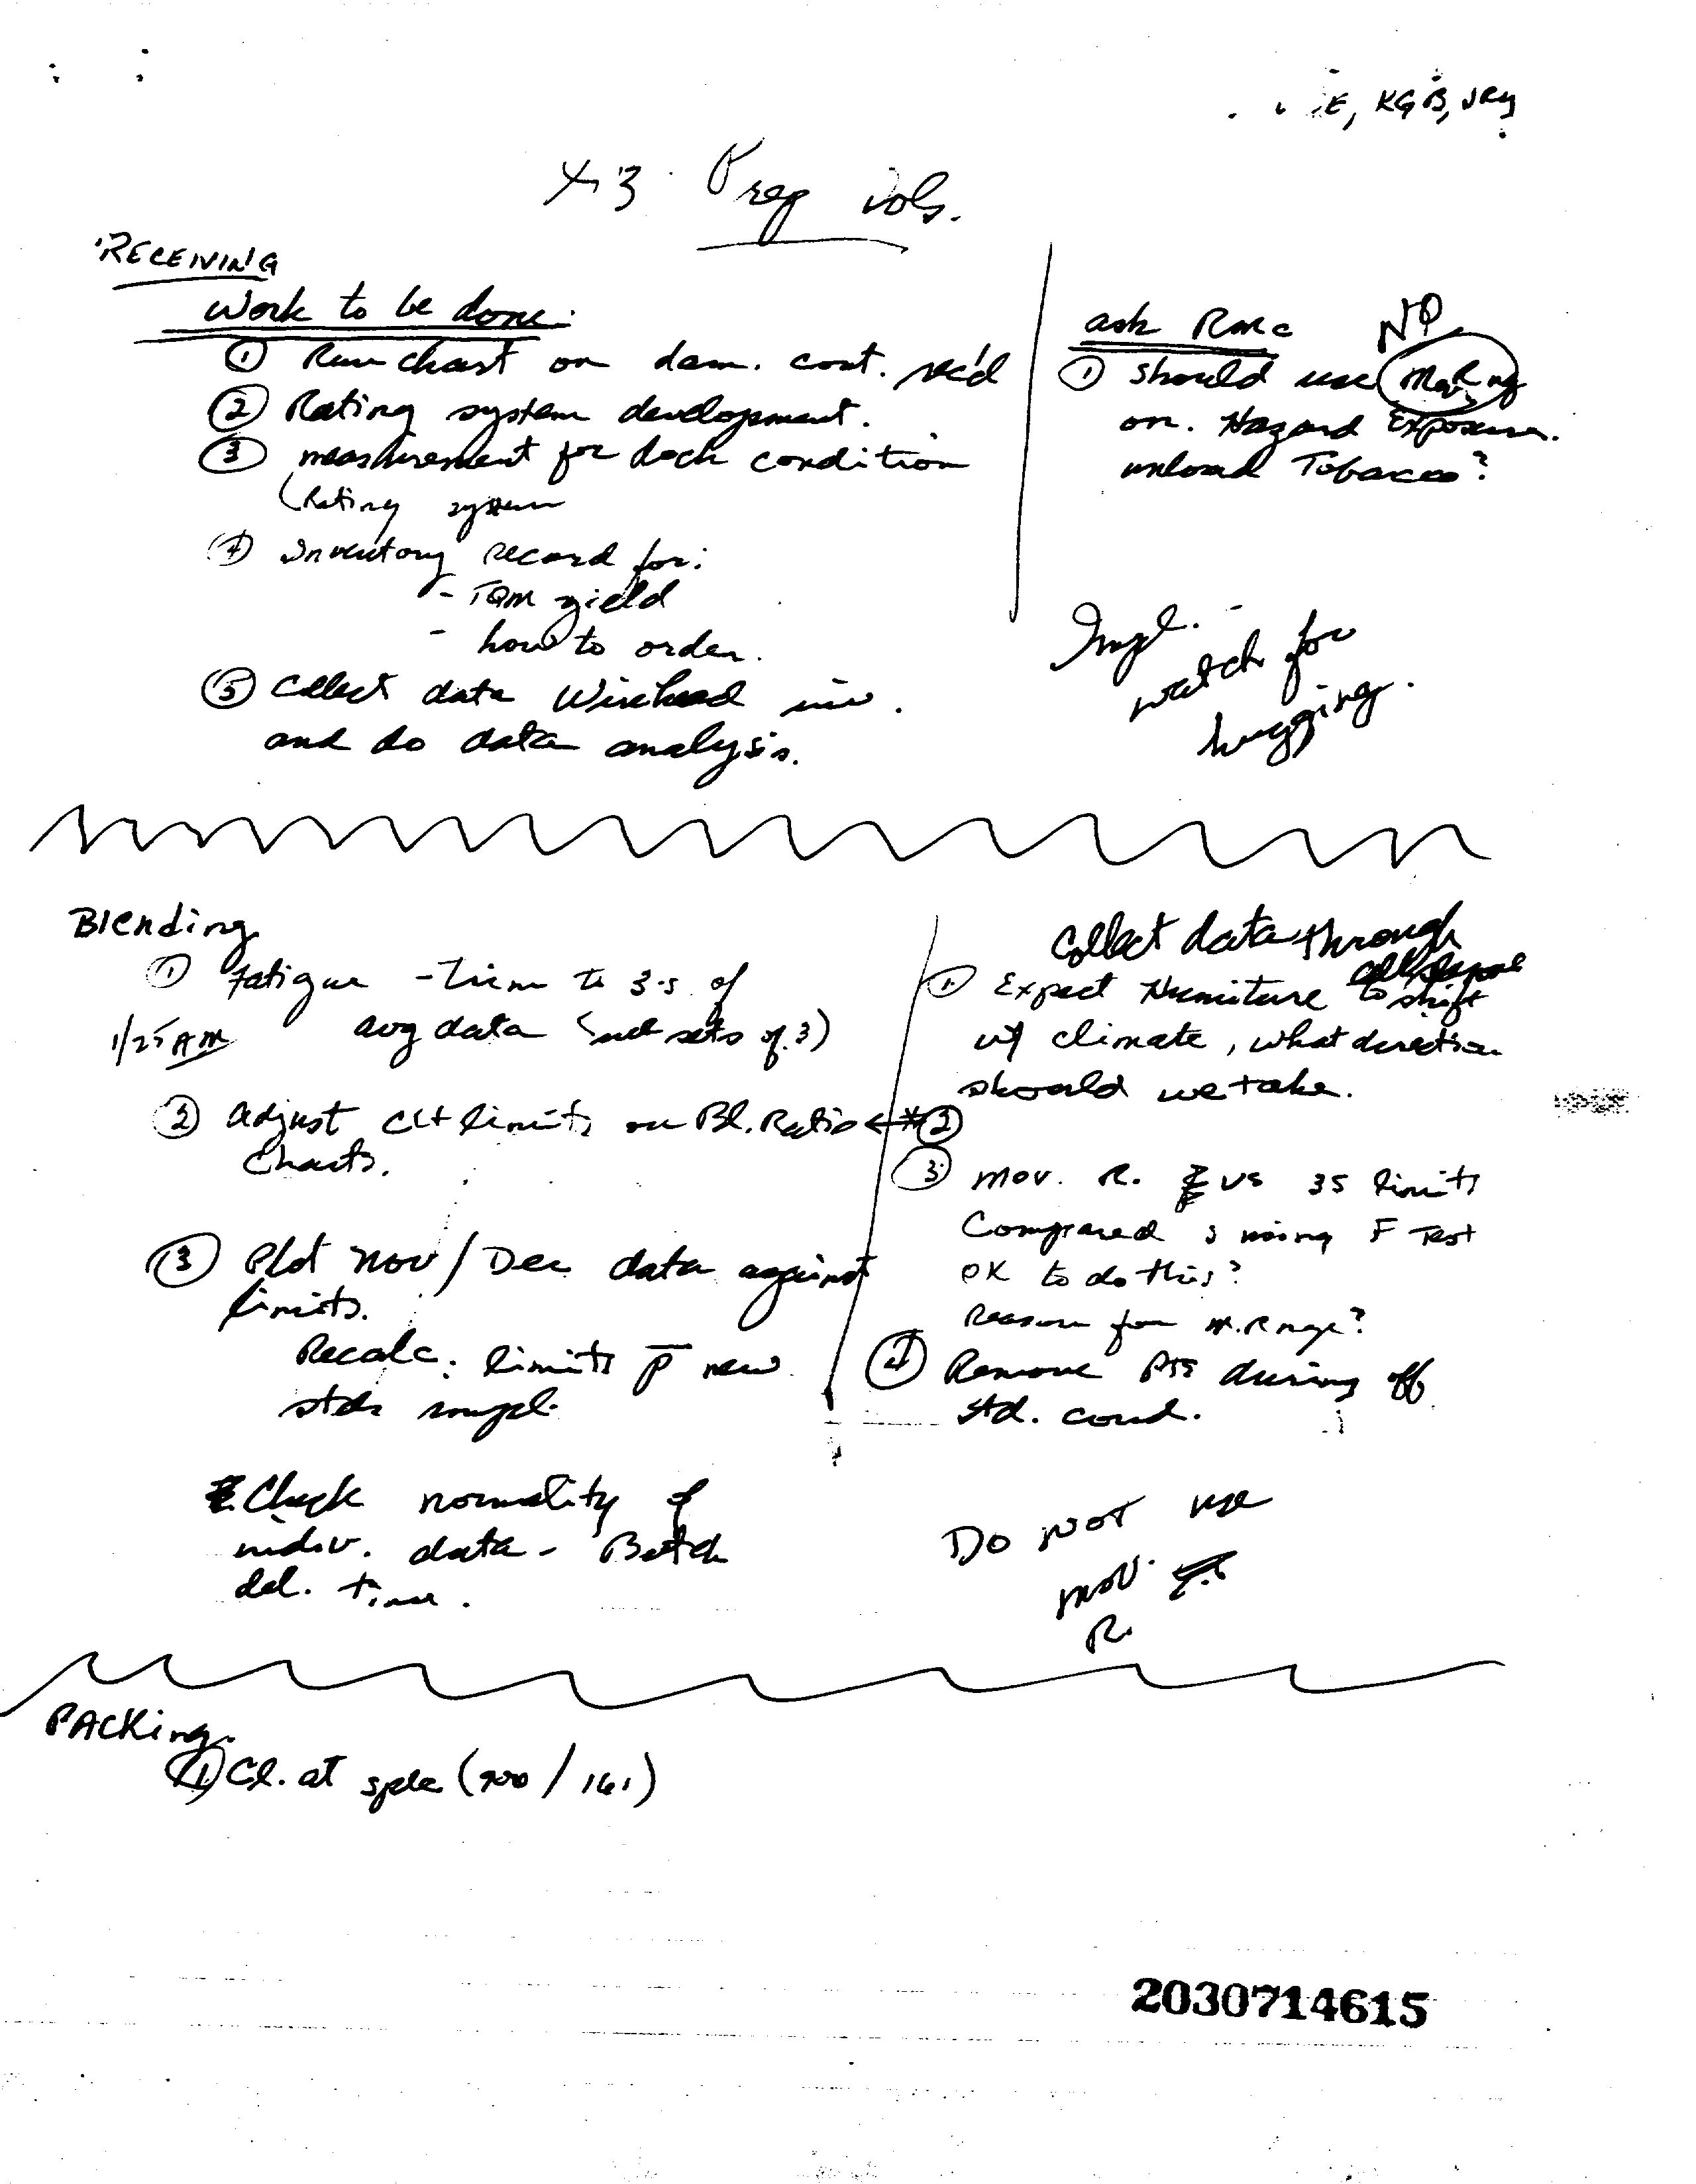 E, KGB, JRY
Prep Vols.
RECEIVING
Work to be done:
① Run chart on dam. cont. rec'd
② Rating system development.
③ measurement for dock condition
(Rating system
④ Inventory record for:
- TQM yield
- how to order.
⑤ Collect data Winehead inv.
and do data analysis.
ask RMC
NO
① Should use Mov Rng
on. Hazard Exposure.
unload Tobacco?
Impl. -
watch for
hugging.
Blending
① Fatigue - Trim to 3-s of
1/25 AM avg data (not sets of 3)
② Adjust limits on Bl. Ratio ← *②
Charts.
③ Plot Nov/Dec data against
limits.
Recalc. limits p̄ new
stds
Check normality of
indiv. data - Batch
del. time.
Collect data through
① Expect Humiture to shift
w/ climate, what direction
should we take.
③ Mov. R. vs 3S limits
Compared s using F Test
OK to do this?
Reason for M. Rnge?
④ Remove PTS during off
std. cond.
Do NOT use
mov.
R.
PACKing.
① Cl. at splr (900/161)
2030714615